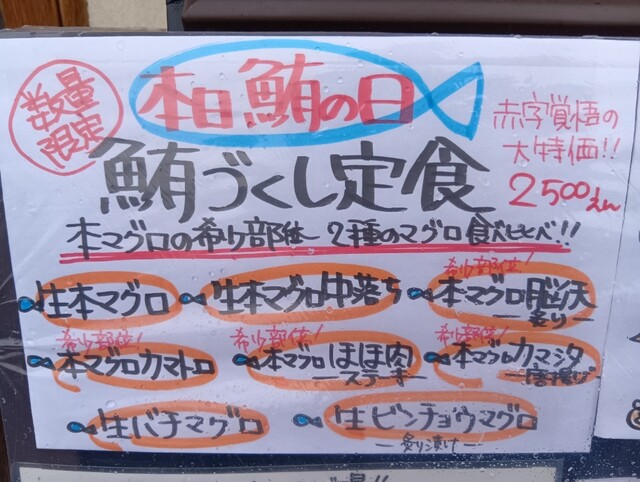 数量
限定
本日鮪の日
赤字覚悟の
大特価!!
2500えん
鮪づくし定食
本マグロの希少部位 2種のマグロ食べ比べ!!
生本マグロ
生本マグロ中落ち
希少部位!
本マグロ脳天
炙り
希少部位!
本マグロカマトロ
希少部位!
本マグロほほ肉
ステーキ
希少部位!
本マグロカマシタ
唐揚げ
生バチマグロ
生ビンチョウマグロ
炙り漬け